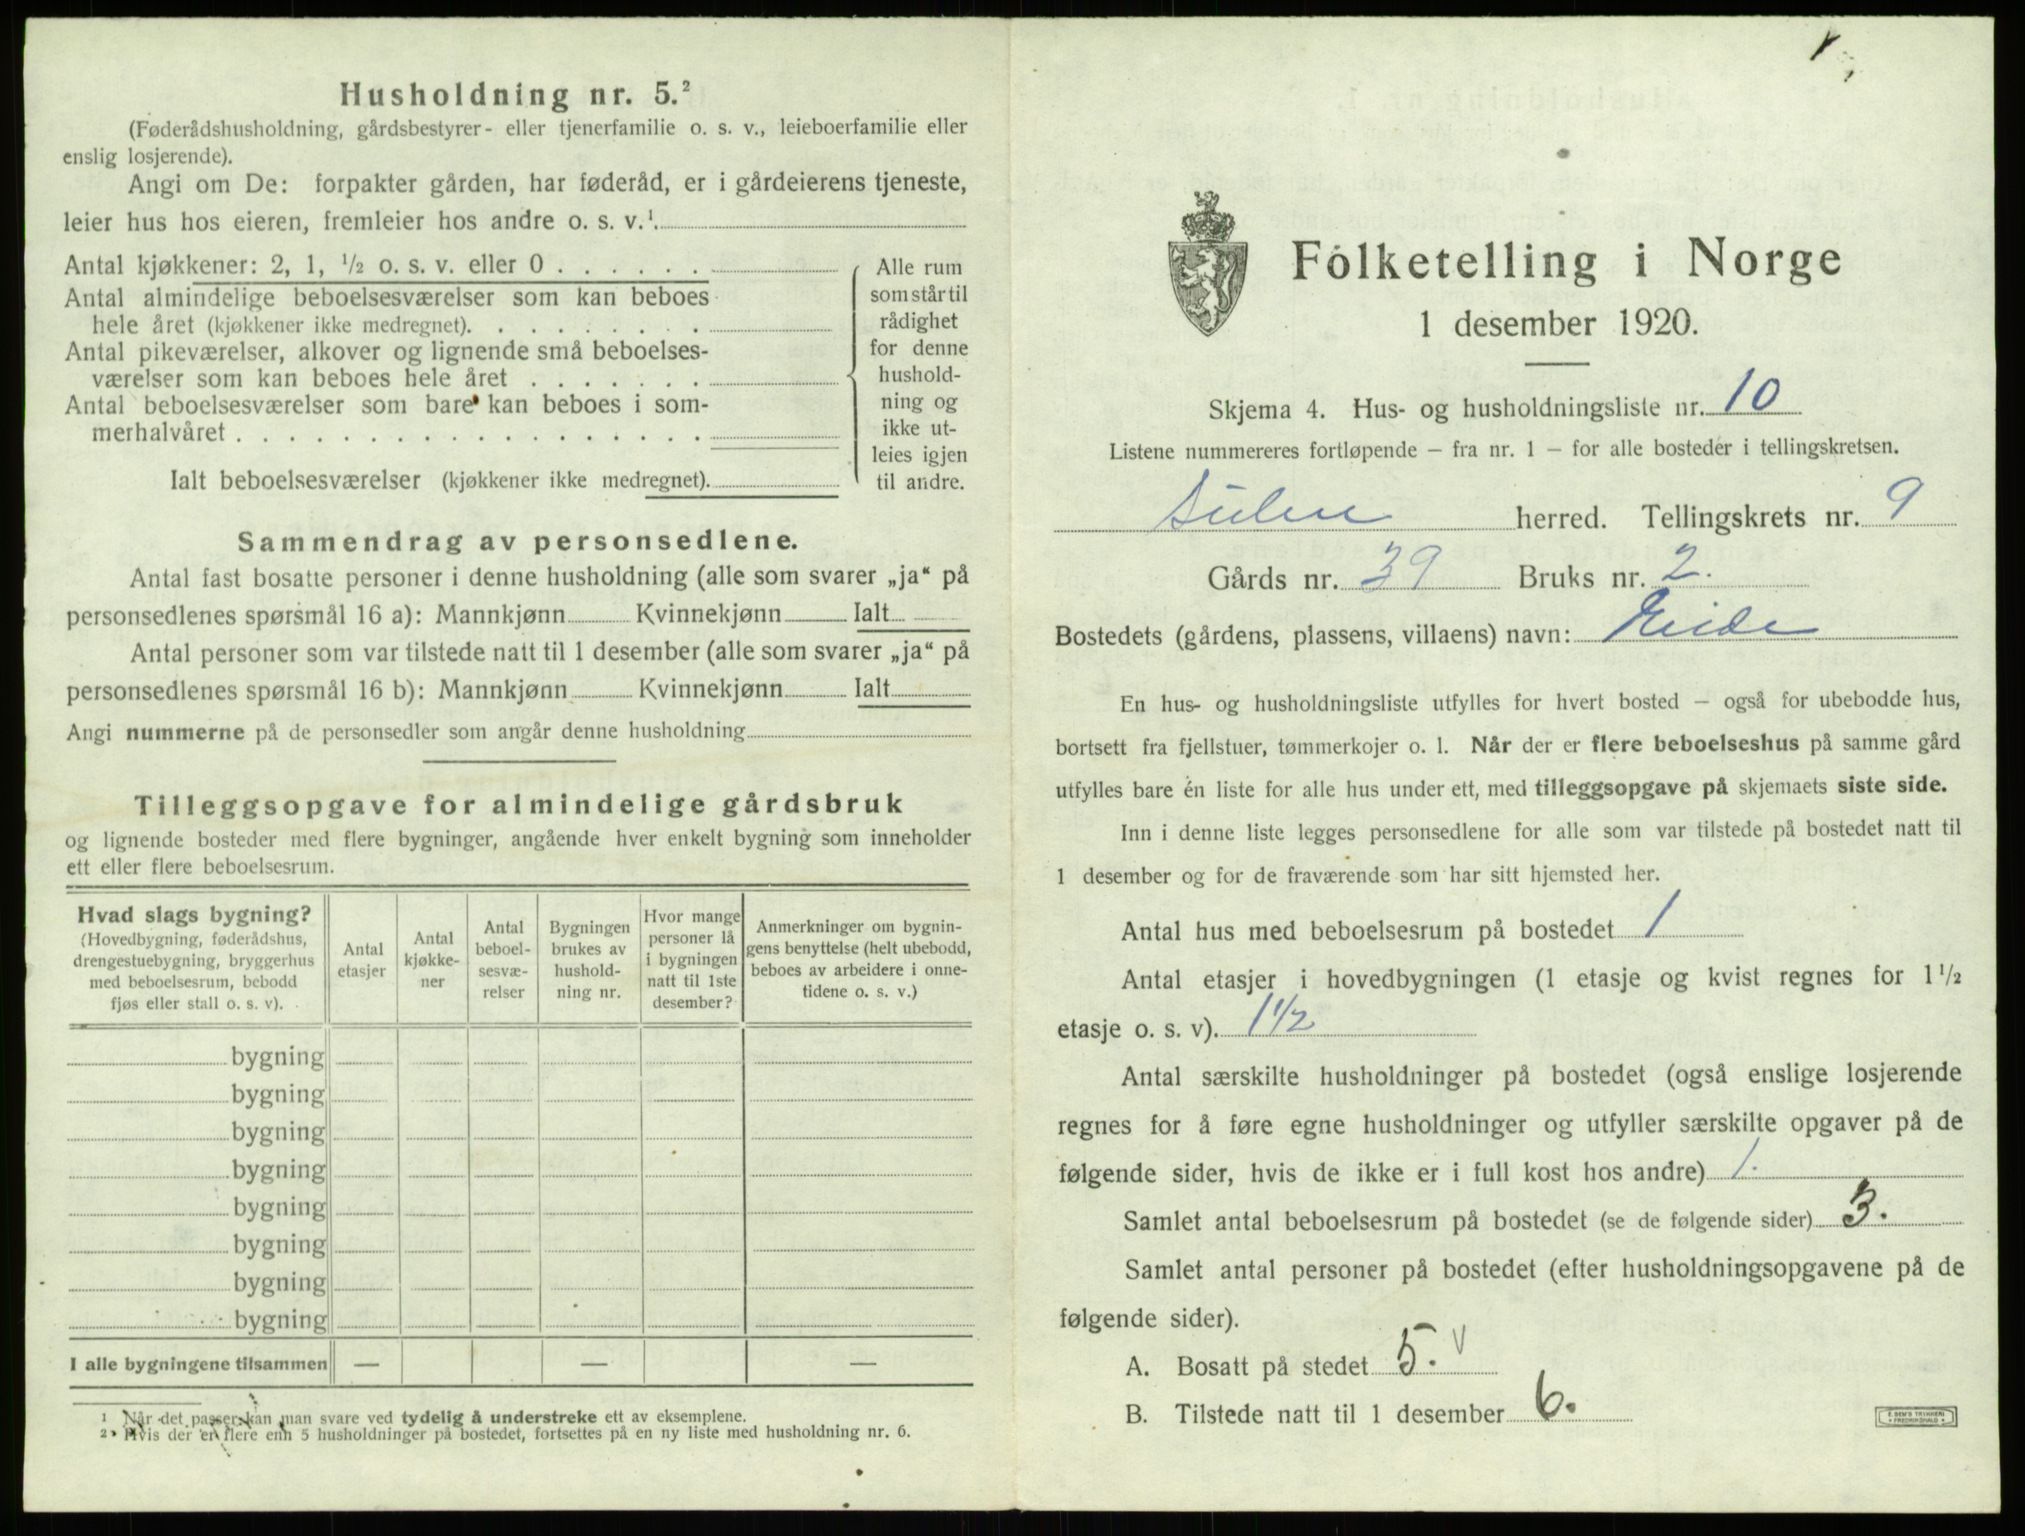 Husholdning nr. 5.²
(Føderådshusholdning, gårdsbestyrer- eller tjenerfamilie o. s. v., leieboerfamilie eller
enslig losjerende).
Angi om De: forpakter gården, har føderåd, er i gårdeierens tjeneste,
leier hus hos eieren, fremleier hos andre o. s. v.¹
Antal kjøkkener: 2, 1, ½ o. s. v. eller 0 . . . . . .
Antal almindelige beboelsesværelser som kan beboes
hele året (kjøkkener ikke medregnet). . . . . . . . .
Antal pikeværelser, alkover og lignende små beboelses-
værelser som kan beboes hele året . . . . . . .
Antal beboelsesværelser som bare kan beboes i som-
merhalvåret . . . . . . . . . . . . . . . . . .
Ialt beboelsesværelser (kjøkkener ikke medregnet).
Alle rum
som står til
rådighet
for denne
hushold-
ning og
ikke ut-
leies igjen
til andre.
Sammendrag av personsedlene.
Antal fast bosatte personer i denne husholdning (alle som svarer „ja“ på
personsedlenes spørsmål 16 a): Mannkjønn Kvinnekjønn Ialt
Antal personer som var tilstede natt til 1 desember (alle som svarer „ja“ på
personsedlenes spørsmål 16 b): Mannkjønn Kvinnekjønn Ialt
Angi nummerne på de personsedler som angår denne husholdning
Tilleggsopgave for almindelige gårdsbruk
og lignende bosteder med flere bygninger, angående hver enkelt bygning som inneholder
ett eller flere beboelsesrum.
Hvad slags bygning?
(Hovedbygning, føderådshus,
drengestuebygning, bryggerhus
med beboelsesrum, bebodd
fjøs eller stall o. s. v).
Antal
etasjer
Antal
kjøkke-
ner
Antal
beboel-
sesvæ-
relser
Bygningen
brukes av
hushold-
ning nr.
Hvor mange
personer lå
i bygningen
natt til 1ste
desember?
Anmerkninger om bygnin-
gens benyttelse (helt ubebodd,
beboes av arbeidere i onne-
tidene o. s. v.)
bygning
bygning
bygning
bygning
bygning
bygning
bygning
bygning
I alle bygningene tilsammen — — —
¹ Når det passer kan man svare ved tydelig å understreke ett av eksemplene.
² Hvis der er flere enn 5 husholdninger på bostedet, fortsettes på en ny liste med husholdning nr. 6.
Folketelling i Norge
1 desember 1920.
Skjema 4. Hus- og husholdningsliste nr. 10
Listene nummereres fortløpende — fra nr. 1 — for alle bosteder i tellingskretsen.
Sulen herred. Tellingskrets nr. 9
Gårds nr. 39 Bruks nr. 2.
Bostedets (gårdens, plassens, villaens) navn: Eide
En hus- og husholdningsliste utfylles for hvert bosted — også for ubebodde hus,
bortsett fra fjellstuer, tømmerkojer o. l. Når der er flere beboelseshus på samme gård
utfylles bare én liste for alle hus under ett, med tilleggsopgave på skjemaets siste side.
Inn i denne liste legges personsedlene for alle som var tilstede på bostedet natt til
1 desember og for de fraværende som har sitt hjemsted her.
Antal hus med beboelsesrum på bostedet 1
Antal etasjer i hovedbygningen (1 etasje og kvist regnes for 1½
etasje o. s. v). 1½
Antal særskilte husholdninger på bostedet (også enslige losjerende
regnes for å føre egne husholdninger og utfyller særskilte opgaver på de
følgende sider, hvis de ikke er i full kost hos andre) 1.
Samlet antal beboelsesrum på bostedet (se de følgende sider) 3.
Samlet antal personer på bostedet (efter husholdningsopgavene på de
følgende sider).
A. Bosatt på stedet 5. v
B. Tilstede natt til 1 desember 6.